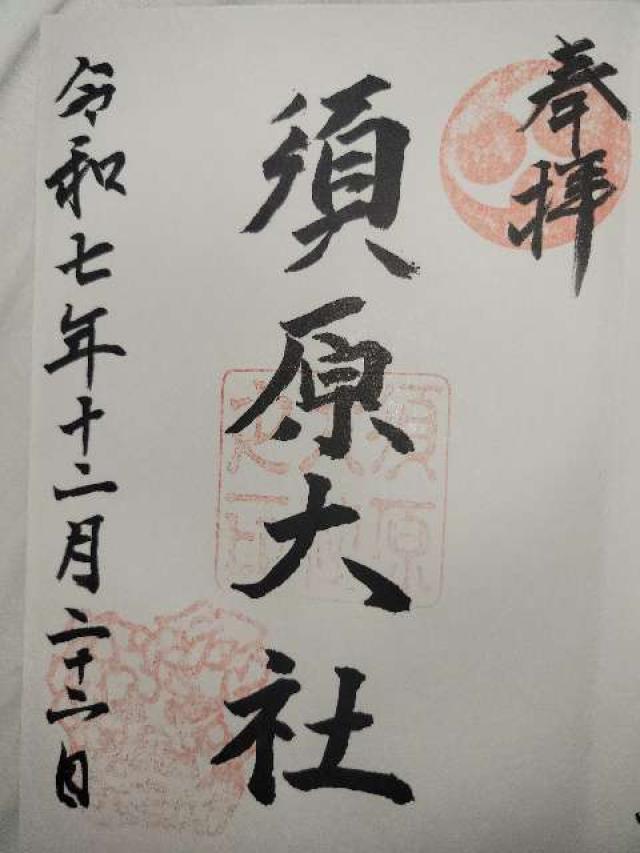 奉拝
須原大社
須原大社之印
令和七年十二月二十二日